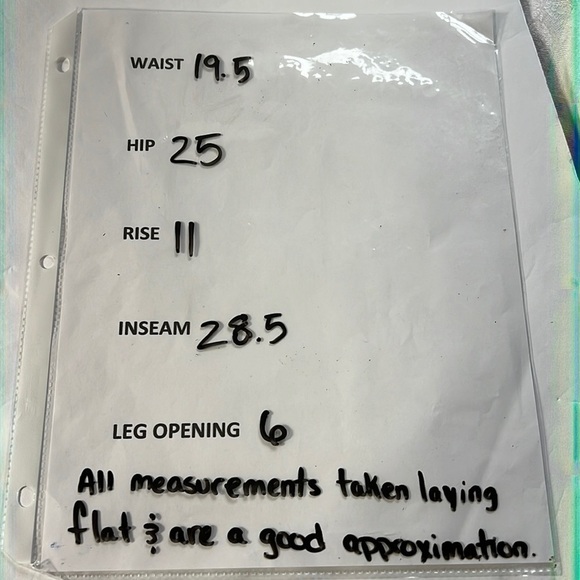 WAIST 19.5
HIP 25
RISE 11
INSEAM 28.5
LEG OPENING 6
All measurements taken laying
flat & are a good approximation.